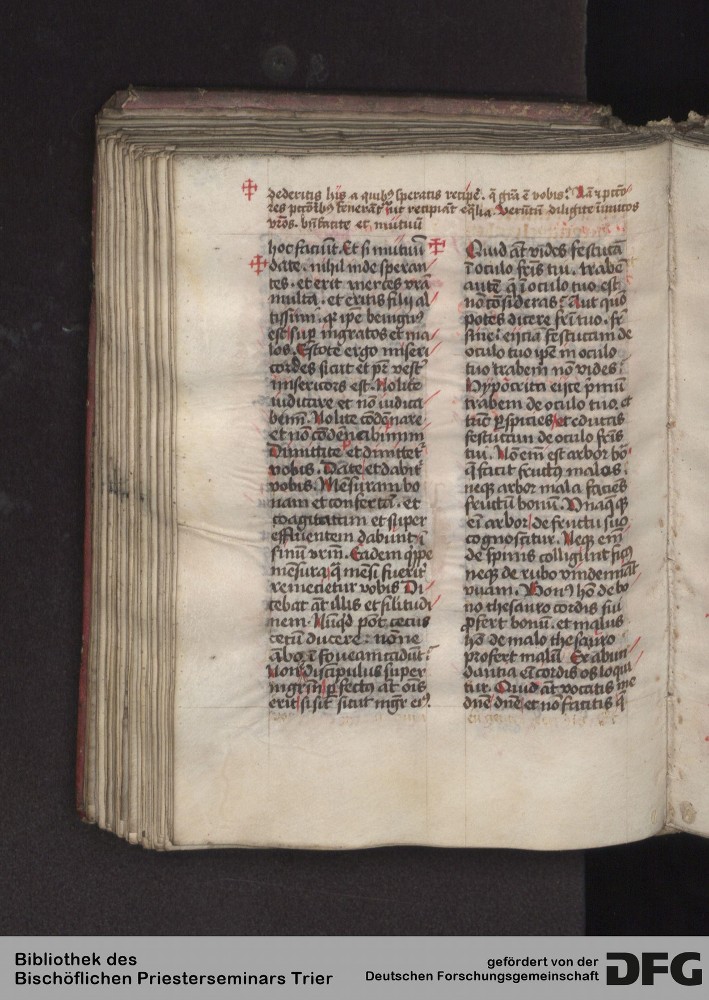 dederitis hijs a quibꝯ speratis recipe͛. q̄ gr̄a ē vobis. Nā ⁊ pctō
res pctōribꝯ fenerāt᷑ ut recipiāt eq̄lia. Verūtn̄ diligite inimicos
vr̄os. bn̄facite et mutuū
hoc faciūt. Et si mutuū
date. nihil inde speran
tes. et erit merces vrā
multa. et eritis filij al
tissimi. q̄ ipe benignꝯ
est sup ingratos et ma
los. Estote ergo miseri
cordes sicut et pr̄ vest͛
misericors est. Nolite
iudicare et nō iudica
bemī. Nolite cōdēnare
et nō cōdēnabimini
Dimittite et dimittet᷑
vobis. Date et dabit᷑
vobis. Mēsuram bo
nam et confertā. et
coagitatam et super
effluentem dabunt ī
sinū vr̄m. Eadem q̄ppe
mēsura q̄ mēsi fuerit᷑
remecietur vobis Di
cebat āt illis et silitudi
nem. Nūqd pōt cecus
cecū ducere. nōne
ābo ī foueam cadūt.
Non discipulus super
mgrm̄ ꝑfectꝯ āt ōis
erit si sit sicut mgr̄ eiꝯ.
Quid āt vides festucā
ī oculo fr̄is tui. trabē
autē q̄ ī oculo tuo est
nō cōsideras. Aut quō
potes dicere fr̄i tuo. fr̄
sine eijciā festucam de
oculo tuo ipē in oculo
tuo trabem nō vides.
Hypōcrita eijce p̄mū
trabem de oculo tuo. et
tūc ꝑspicies et educas
festucam de oculo fr̄is
tui. Nō em̄ est arbor bōa
q̄ facit fructꝯ malos.
neq̄ arbor mala faciēs
fructū bonū. Vnaq̄q̄
em̄ arbor de fructu suo
cognoscitur. Neq̄ em̄
de spinis colligūt ficꝯ
neq̄ de rubo vindemiāt
vuam. Bonꝯ hō de bo
no thesauro cordis sui
ꝓfert bonū. et malus
hō de malo thesauro
profert malū Ex abun
dantia em̄ cordis os loqui
tur. Quid āt vocatis me
dn̄e dn̄e et nō facitis q̄
Bibliothek des
Bischöflichen Priesterseminars Trier
gefördert von der
Deutschen Forschungsgemeinschaft
DFG